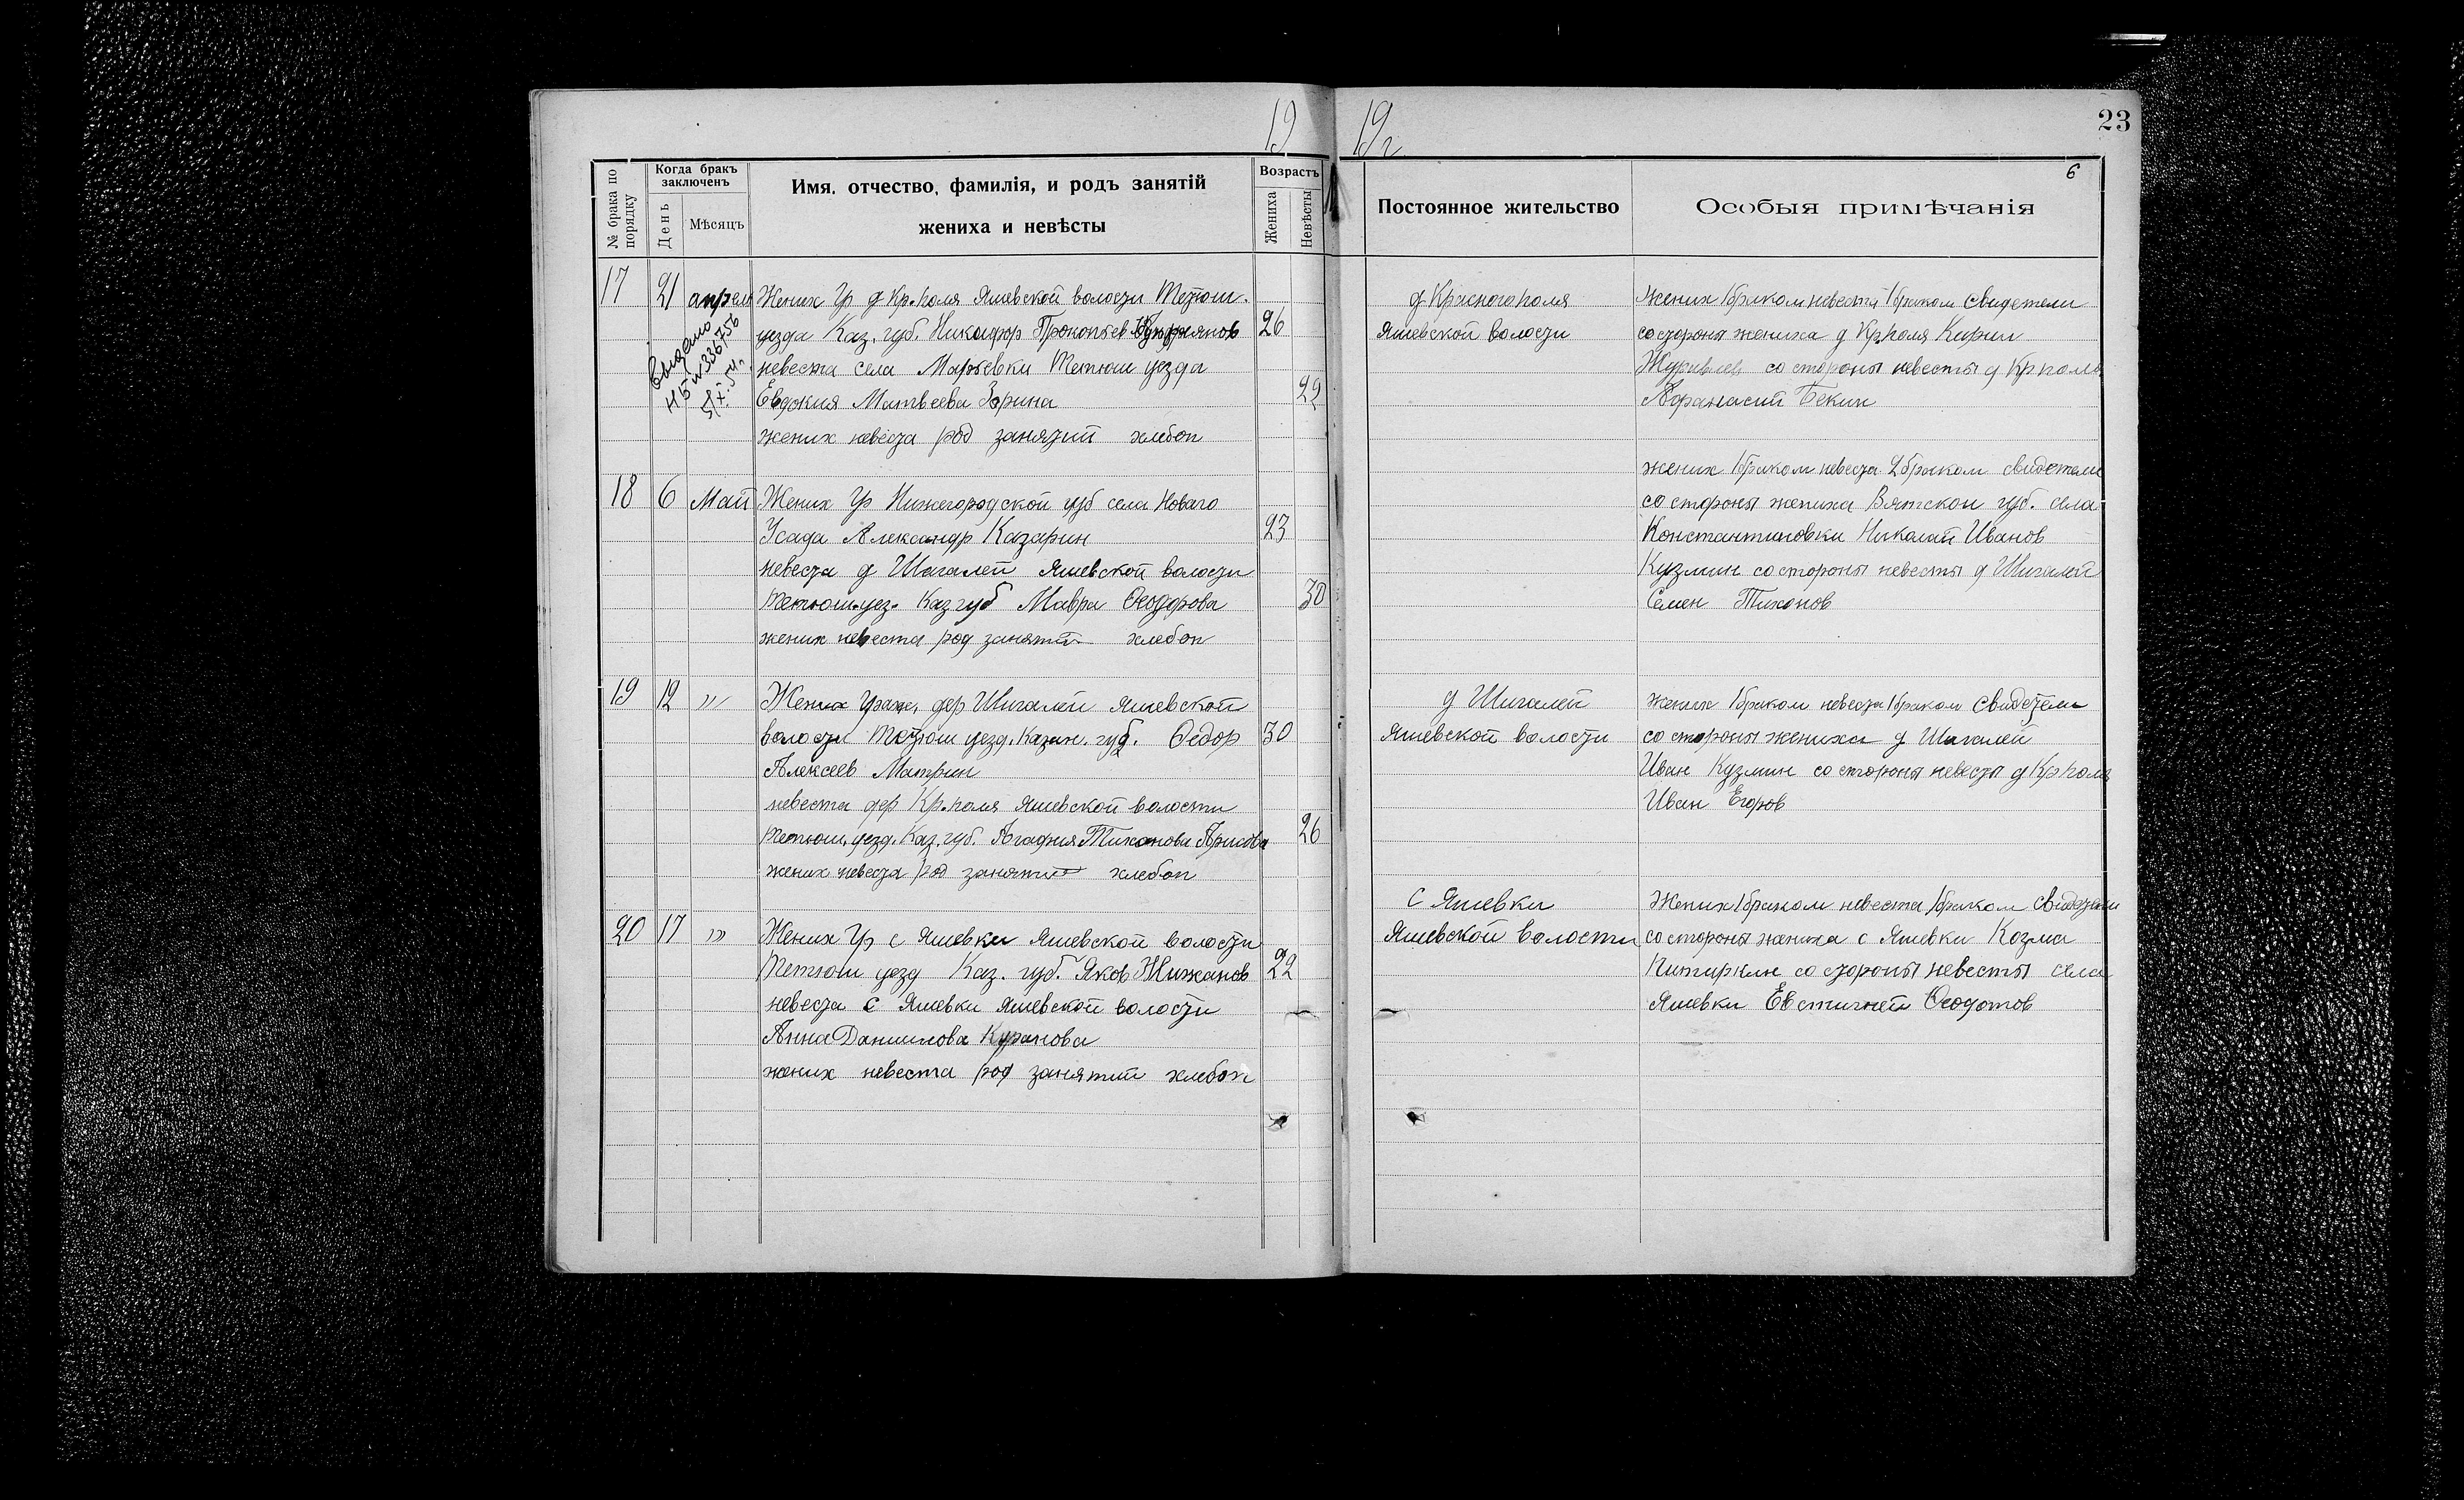 19 19г.
23
6
№ брака по порядку
Когда бракъ заключенъ
День
Мѣсяцъ
Имя, отчество, фамилія, и родъ занятій
жениха и невѣсты
Возрастъ
Жениха
Невѣсты
Постоянное жительство
Особыя примѣчанія
17 21 апреля Жених Гр д Кр.поля Яшевской волости Тетюш.
уезда Каз. губ. Никифор Прокопьев 26
невеста села Марьевки Тетюш уезда
Евдокия Матвеева Зорина 22
жених невеста род занятий хлебоп
Выдано
5/X.54г.
д Красного поля
Яшевской волости
жених 1 браком невеста 1 браком свидетели
со стороны жениха д Кр.поля Кирил
Журавлев со стороны невесты д Кр поля
Афанасий Бекин
18 6 Май Жених Гр Нижегородской губ села Новаго
Усада Александр Казарин 23
невеста д Шигалей Яшевской волости
Тетюш.уез. Каз губ Мавра Феодорова 30
жених невеста род занятий хлебоп
жених 1 браком невеста 2 браком свидетели
со стороны жениха Вятской губ. села
Константиновки Николай Иванов
Кузмин со стороны невесты д Шигалей
Семен Тихонов
19 12 " Жених Граж. дер Шигалей Яшевской
волости Тетюш уезд. Казан. губ. Федор 30
Алексеев Матрин
невеста дер Кр.поля Яшевской волости
Тетюш. уезд. Каз. губ. Агафия Тихонова 26
жених невеста род занятий хлебоп
д Шигалей
Яшевской волости
жених 1 браком невеста 1 браком свидетели
со стороны жениха д Шигалей
Иван Кузмин со стороны невесты д Кр поля
Иван Егоров
20 17 " Жених Гр с Яшевки Яшевской волости
Тетюш уезд Каз. губ. Яков Нижанов 22
невеста с Яшевки Яшевской волости
Анна Данилова Куранова
жених невеста род занятий хлебоп
с Яшевки
Яшевской волости
Жених 1 браком невеста 1 браком свидетели
со стороны жениха с Яшевки Козма
со стороны невесты села
Яшевки Евстигней Феодотов